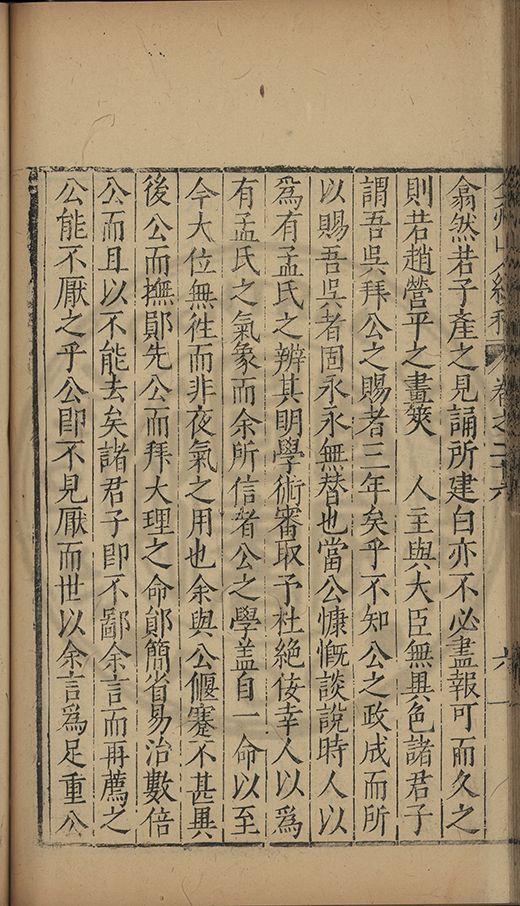 翕然若子產之見誦所建白亦不必盡報可而久之
則若趙營平之畫筴　人主與大臣無異色諸君子
謂吾吳拜公之賜者三年矣乎不知公之政成而所
以賜吾吳者固永永無替也當公慷慨談說時人以
為有孟氏之辨其明學術審取予杜絶倿幸人以為
有孟氏之氣象而余所信者公之學蓋自一命以至
今大位無徃而非夜氣之用也余與公偃蹇不甚異
後公而撫鄖先公而拜大理之命鄖簡省易治數倍
公而且以不能去矣諸君子即不鄙余言而再薦之
公能不厭之乎公即不見厭而世以余言為足重公